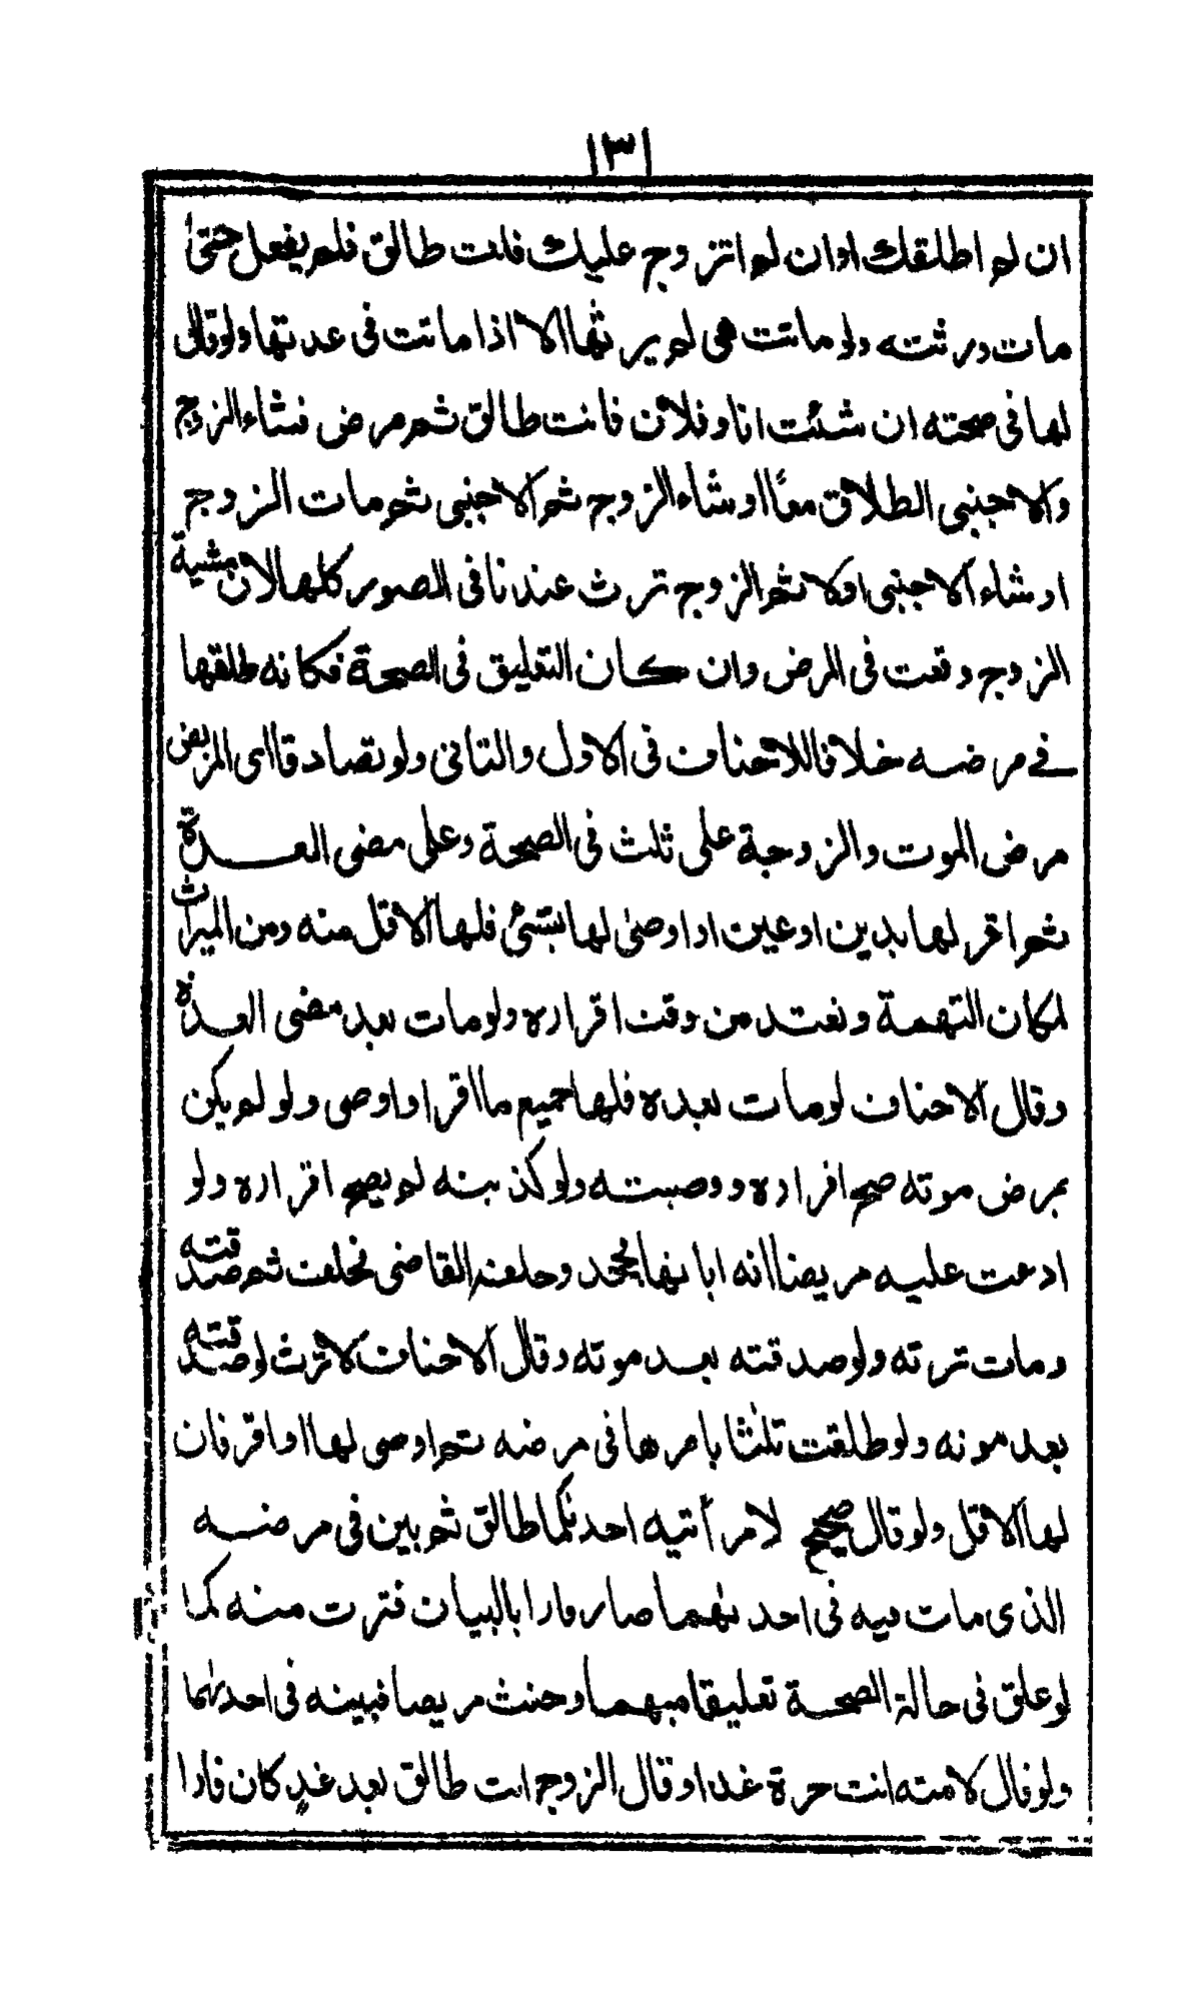 ١٣١
ان لم اطلقك اوان لم اتزوج عليك فانت طالق فلم يفعل حتىٰ
مات ورثته ولو ماتت هى لم يرثها الا اذا ماتت فى عدتها ولو قال
لها فى صحته ان شئت انا وفلان فانت طالق ثم مرض فشاء الزوج
والاجنبى الطلاق معًا اوشاء الزوج ثم الاجنبى ثم مات الزوج
اوشاء الاجنبى اولا ثم الزوج ترث عندنا فى الصور كلها لان مشية
الزوج وقعت فى المرض وان كان التعليق فى الصحة فكانه طلقها
فے مرضه خلافا للاحناف فى الاول والثانى ولو تصادقا اى المريض
مرض الموت والزوجة على ثلث فى الصحة وعلى مضى العدة
ثم اقر لها بدين اوعين او اوصىٰ لها بشئ فلها الاقل منه ومن الميراث
لمكان التهمة وتعتد من وقت اقراره ولومات بعد مضى العدة
وقال الاحناف لومات بعده فلها جميع ما اقر او اوصى ولو لم يكن
بمرض موته صح اقراره ووصيته ولو كذبته لم يصح اقراره ولو
ادعت عليه مريضا انه ابانها فجحد وحلفه القاضى فحلف ثم صدقته
ومات ترثه ولو صدقته بعد موته وقال الاحناف لا ترث لو صدقته
بعد موته ولو طلقت ثلٰثا بامرها فى مرضه ثم اوصى لها او اقر فان
لها الاقل ولو قال صحيح لامرأتيه احدٰكما طالق ثم بين فى مرضه
الذى مات فيه فى احدٰهما صار فارا بالبيان فترث منه كما
لو علق فى حالة الصحة تعليقا مبهما وحنث مريضا فبينه فى احدٰهما
ولو قال لامته انت حرة غدا وقال الزوج انت طالق بعد غدٍ كان فارا